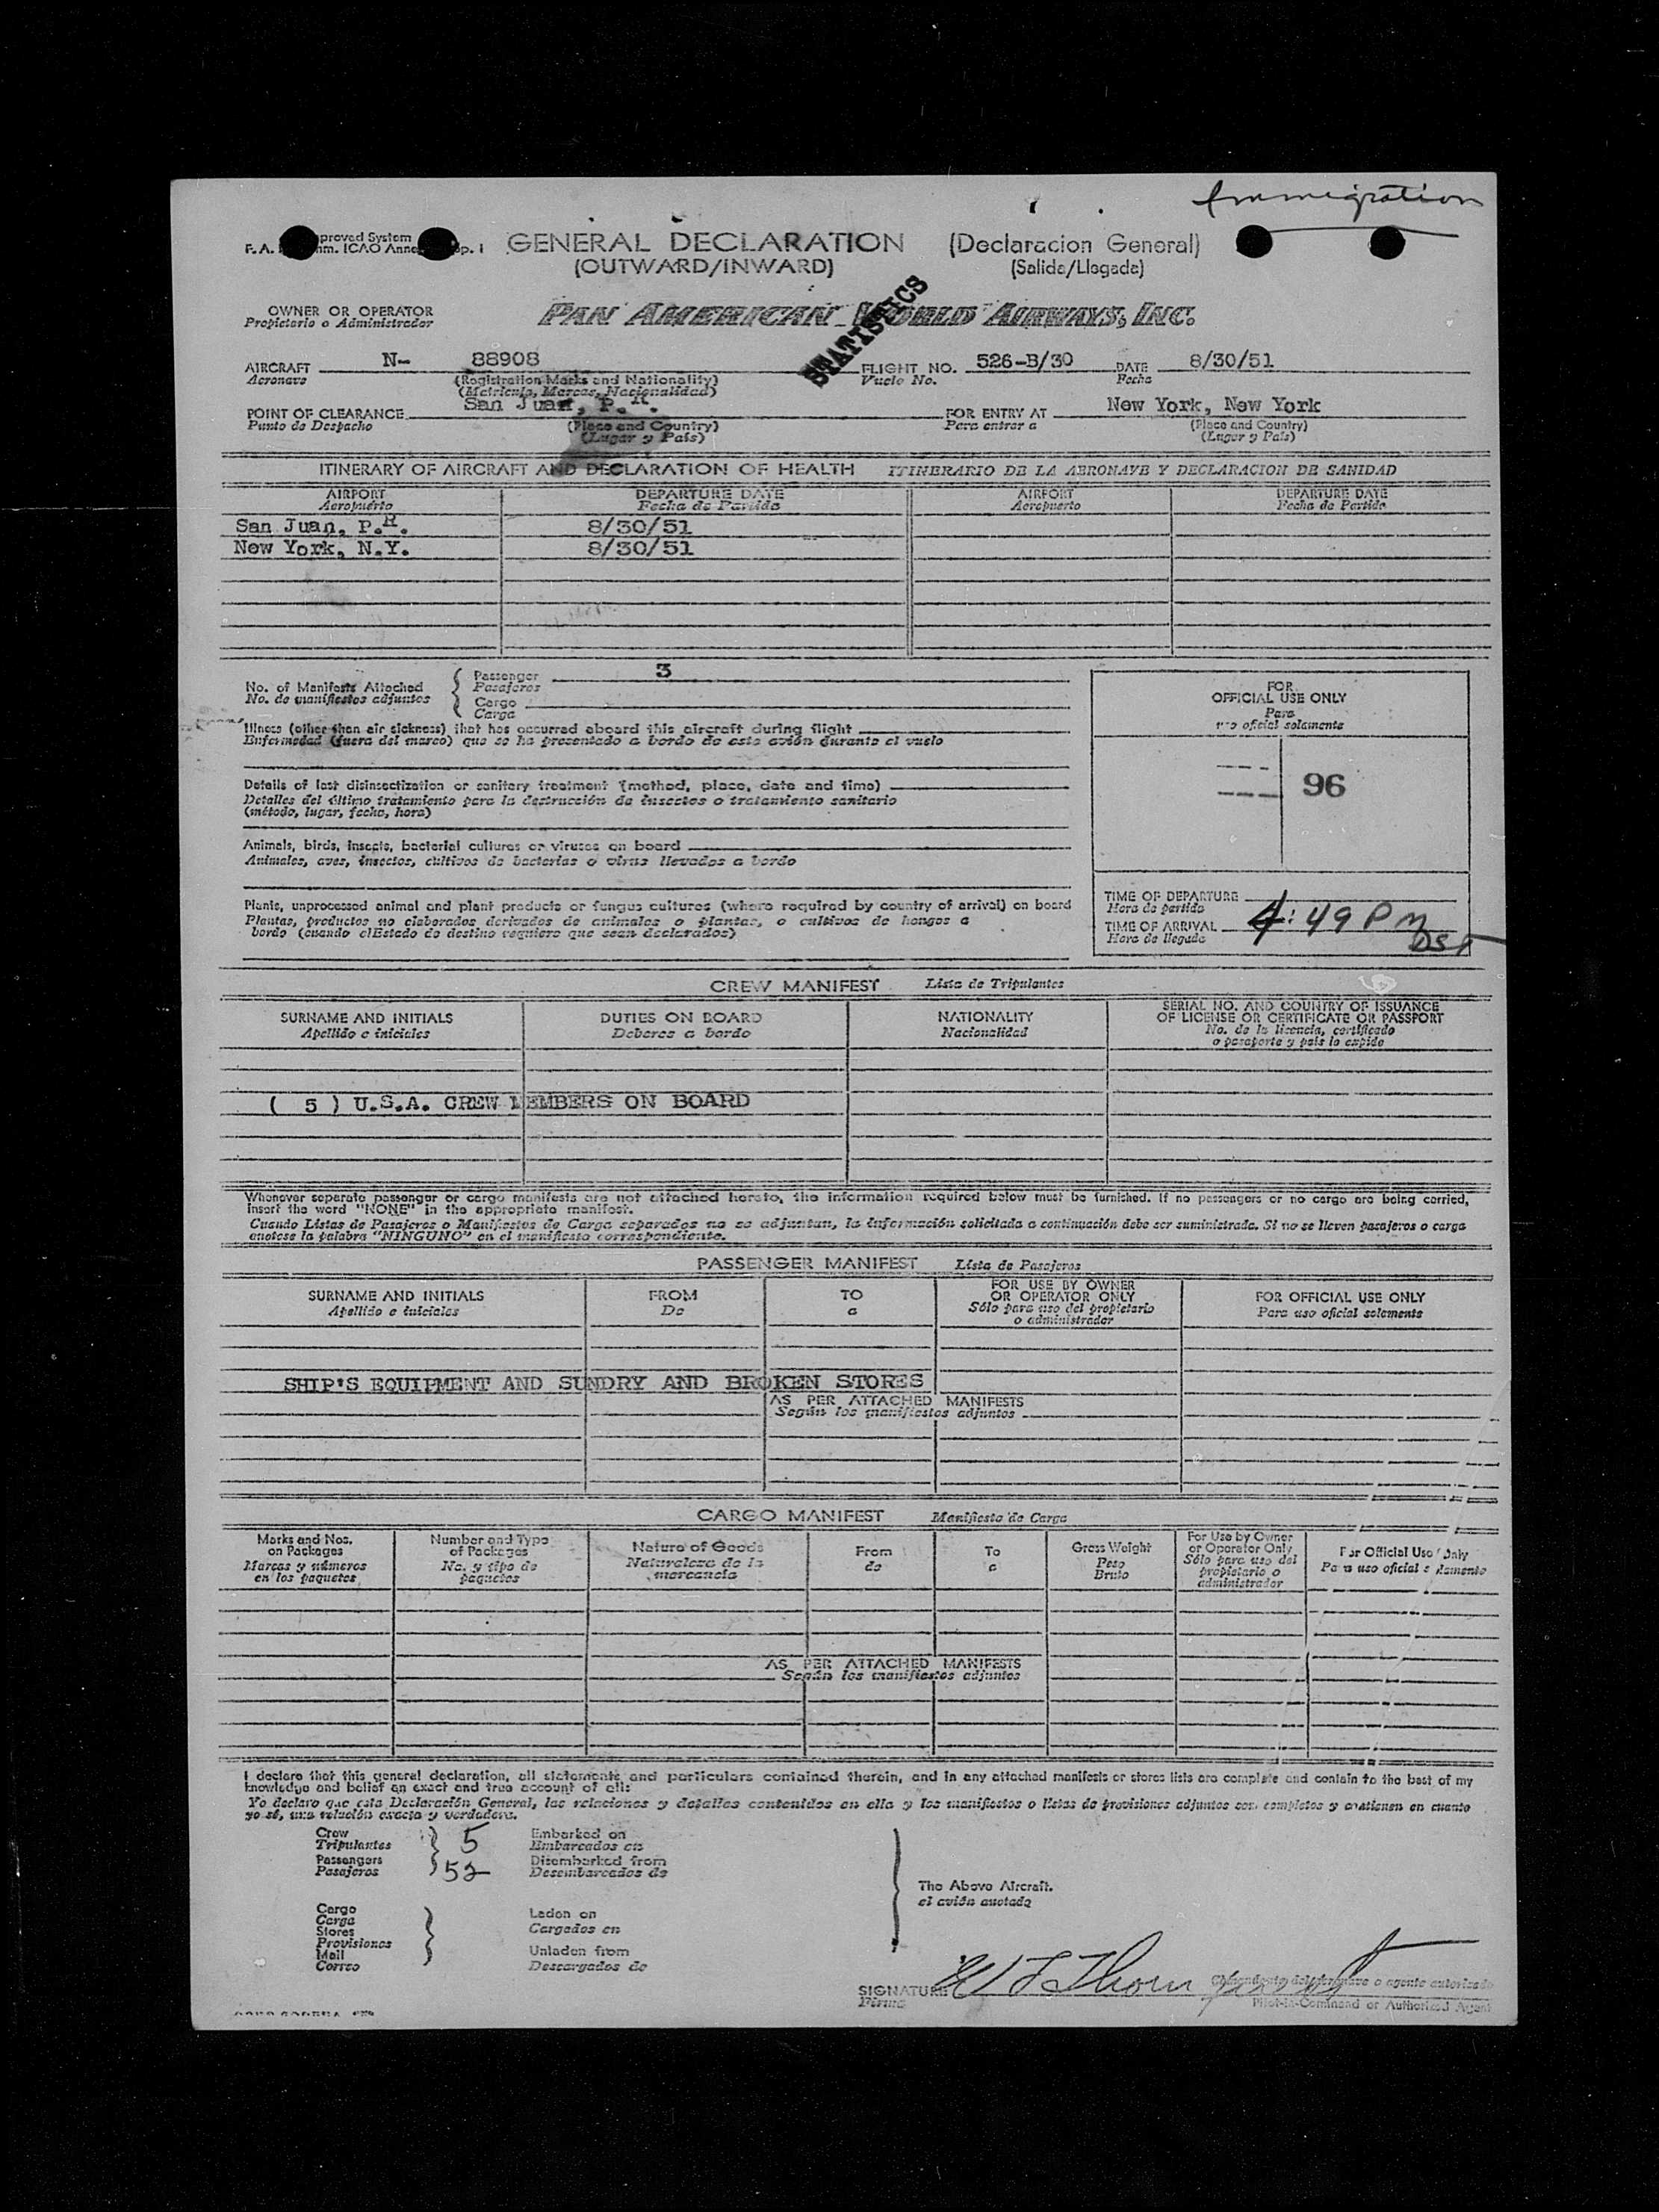 Immigration
GENERAL DECLARATION (Declaracion General)
(OUTWARD/INWARD) (Salida/Llegada)
STATISTICS
OWNER OR OPERATOR
Propietario o Administrador
PAN AMERICAN WORLD AIRWAYS, INC.
AIRCRAFT N- 88908 FLIGHT NO. 526-B/30 DATE 8/30/51
Aeronave (Registration Marks and Nationality) Vuelo No. Fecha
(Matricula, Marcas, Nacionalidad)
San Juan, P.R. New York, New York
POINT OF CLEARANCE FOR ENTRY AT
Punto de Despacho (Place and Country) Para entrar a (Place and Country)
(Lugar y País) (Lugar y País)
ITINERARY OF AIRCRAFT AND DECLARATION OF HEALTH ITINERARIO DE LA AERONAVE Y DECLARACION DE SANIDAD
AIRPORT DEPARTURE DATE AIRPORT DEPARTURE DATE
Aeropuerto Fecha de Partida Aeropuerto Fecha de Partida
San Juan, P.R. 8/30/51
New York, N.Y. 8/30/51
No. of Manifests Attached Passenger 3
No. de manifiestos adjuntos Pasajeros
Cargo
Carga
FOR
OFFICIAL USE ONLY
Para
uso oficial solamente
Illness (other than air sickness) that has occurred aboard this aircraft during flight
Enfermedad (fuera del mareo) que se ha presentado a bordo de este avión durante el vuelo
96
Details of last disinsectization or sanitary treatment (method, place, date and time)
Detalles del último tratamiento para la destrucción de insectos o tratamiento sanitario
(método, lugar, fecha, hora)
Animals, birds, insects, bacterial cultures or viruses on board
Animales, aves, insectos, cultivos de bacterias o virus llevados a bordo
Plants, unprocessed animal and plant products or fungus cultures (where required by country of arrival) on board
Plantas, productos no elaborados derivados de animales o plantas, o cultivos de hongos a
bordo (cuando el Estado de destino requiere que sean declarados)
TIME OF DEPARTURE
Hora de partida
TIME OF ARRIVAL 4:49 PM DST
Hora de llegada
CREW MANIFEST Lista de Tripulantes
SURNAME AND INITIALS DUTIES ON BOARD NATIONALITY SERIAL NO. AND COUNTRY OF ISSUANCE
OF LICENSE OR CERTIFICATE OR PASSPORT
Apellido e iniciales Deberes a bordo Nacionalidad No. de la licencia, certificado
o pasaporte y país lo expide
( 5 ) U.S.A. CREW MEMBERS ON BOARD
Whenever separate passenger or cargo manifests are not attached hereto, the information required below must be furnished. If no passengers or no cargo are being carried,
insert the word "NONE" in the appropriate manifest.
Cuando Listas de Pasajeros o Manifiestos de Carga separados no se adjuntan, la información solicitada a continuación debe ser suministrada. Si no se lleven pasajeros o carga
anotese la palabra "NINGUNO" en el manifiesto correspondiente.
PASSENGER MANIFEST Lista de Pasajeros
SURNAME AND INITIALS FROM TO FOR USE BY OWNER
OR OPERATOR ONLY FOR OFFICIAL USE ONLY
Apellido e iniciales De a Sólo para uso del propietario
o administrador Para uso oficial solamente
SHIP'S EQUIPMENT AND SUNDRY AND BROKEN STORES
AS PER ATTACHED MANIFESTS
Según los manifiestos adjuntos
CARGO MANIFEST Manifiesto de Carga
Marks and Nos.
on Packages
Marcas y números
en los paquetes
Number and Type
of Packages
No. y tipo de
paquetes
Nature of Goods
Naturaleza de la
mercancía
From
de
To
a
Gross Weight
Peso
Bruto
For Use by Owner
or Operator Only
Sólo para uso del
propietario o
administrador
For Official Use Only
Para uso oficial solamente
AS PER ATTACHED MANIFESTS
Según los manifiestos adjuntos
I declare that this general declaration, all statements and particulars contained therein, and in any attached manifests or stores lists are complete and contain to the best of my
knowledge and belief an exact and true account of all:
Yo declaro que esta Declaración General, las relaciones y detalles contenidos en ella y los manifiestos o listas de provisiones adjuntos son completos y contienen en cuanto
yo sé, una relución exacta y verdadera.
Crew 5 Embarked on
Tripulantes Embarcados en
Passengers 52 Disembarked from
Pasajeros Desembarcados de
The Above Aircraft.
el avión anotado
Cargo
Carga
Stores
Provisiones
Mail
Correo
Laden on
Cargados en
Unladen from
Descargados de
SIGNATURE
Firma
Pilot-in-Command or Authorized Agent